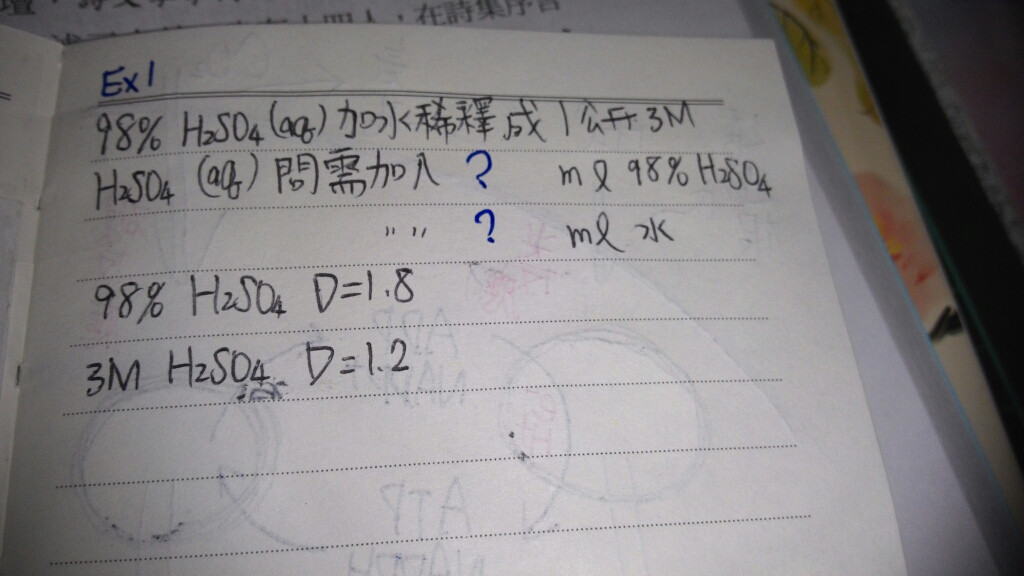 在詩集序言
Ex1
98% H₂SO₄(aq) 加水稀釋成 1公升 3M
H₂SO₄ (aq) 問需加入 ? ml 98% H₂SO₄
" " ? ml 水
98% H₂SO₄ D=1.8
3M H₂SO₄ D=1.2